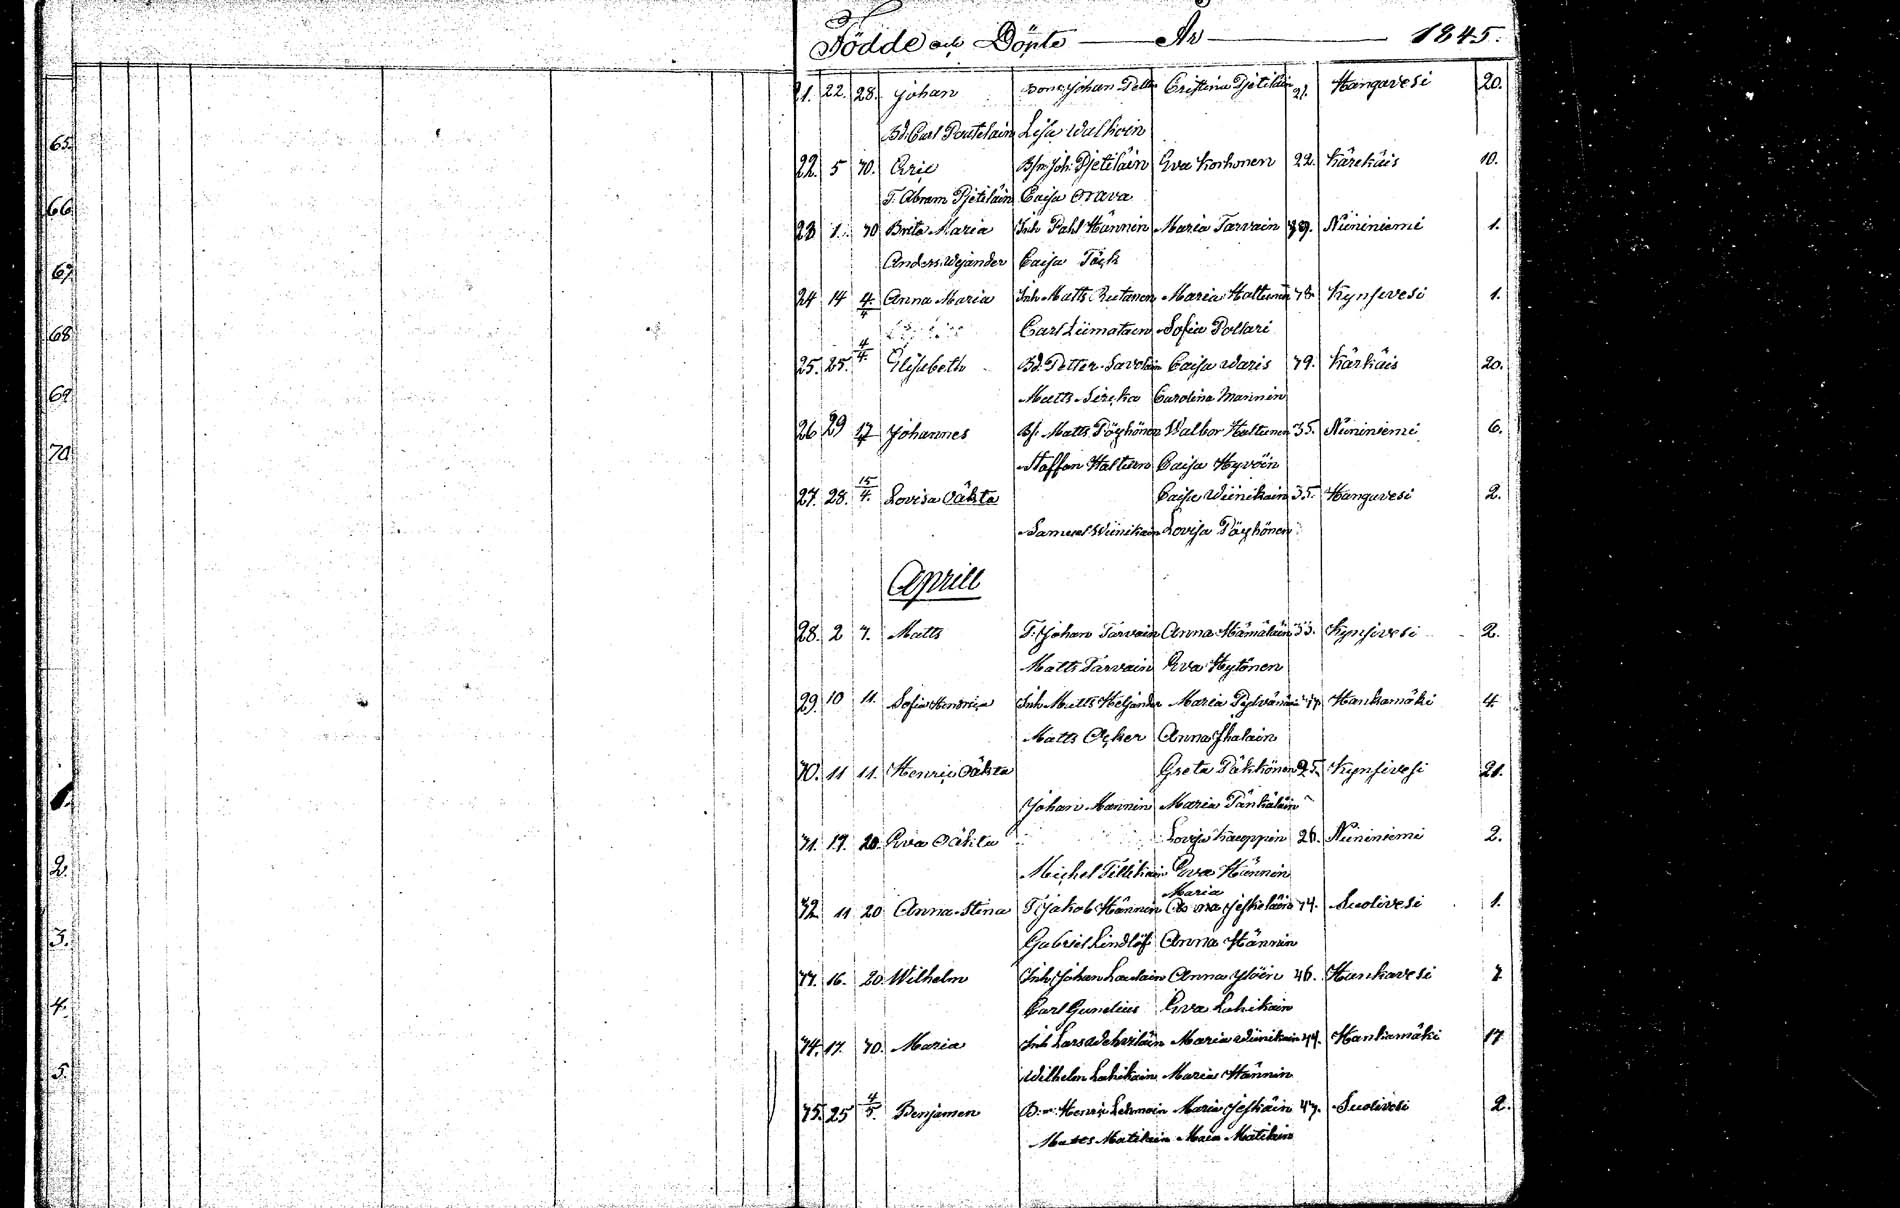 65.
66
67.
68
69
70
1.
2.
3.
4.
5.
Födde och Döpte År 1845.
21. 22. 28. Johan Bonc. Johan Petter Cristina Pjetiläin 21. Hangavesi 20.
Bd. Carl Poutelain Lisa Walkoin
22. 5 30. Eric B/m Joh. Pjetiläin Eva Korhonen 22. Kärekäis 10.
T. Abram Pjetiläin Caisa Orava
23 1. 30 Brita Maria Inh Pahl Hännin Maria Tarvain 39. Niininiemi 1.
Anders Wejander Caisa Täck
24 14 4/4 Anna Maria Inh Matts Rutanen Maria Haltunin 38. Kynsivesi 1.
Carl Liimatain Sofia Pollari
25. 25. 4/4. Elisabeth Bd. Petter Savolain Caisa Waris 39. Kärkäis 20.
Matts Sircka Carolina Mannin
26 29 13/4 Johannes B/. Matts Pöyhönen Walbor Haltunen 35. Niininiemi 6.
Staffan Haltun Caisa Hyvöin
27. 28. 15/4. Lovisa Oäkta Caisa Wiinikain 35. Hangavesi 2.
Samuel Wiinikain Lovisa Pöyhönen
Aprill
28. 2 7. Matts T. Johan Tarvain Anna Hämäläin 33. Kynsivesi 2.
Matts Tarvain Eva Hytönen
29. 10 11. Sofia Henrica Inh Matts Heljander Maria Pylvänäin 37. Hankamäki 4.
Matts Acker Anna Ihalain
30. 11 11. Henric Oäkta Greta Päkkönen 25. Kynsivesi 21.
Johan Mannin Maria Pänkäläin
31. 17. 20. Eva Oäkta Lovisa Kauppin 26. Niininiemi 2.
Michel Tillikain Eva Hännin
Maria
32. 11 20 Anna Stina T. Jakob Hännin Anna Jeskeläin 34. Suolivesi 1.
Gabriel Lindlöf Anna Hännin
33. 16. 20. Wilhelm Inh Johan Laulain Anna Ylöin 46. Hankavesi 7
Carl Gundelius Eva Luhikain
34. 17. 30. Maria Inh Lars Wehviläin Maria Wiinikain 44. Hankamäki 17
Wilhelm Luhikain Maria Hännin
35. 25 4/5. Benjamen B:n Henric Lehmoin Maria Jeskäin 43. Suolivesi 2.
Mattes Matikain Maia Matikain